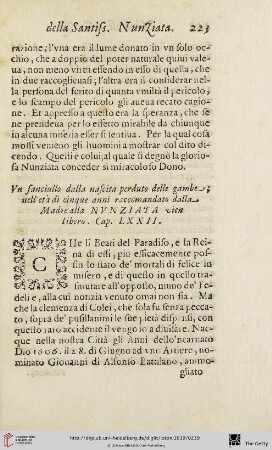 della Santiss. NunZiata. 223
razione; l'vna era il lume donato in vn solo oc-
chio, che a doppio del poter naturale quiui valeua
, non meno viti essendo in esso di quella, che
in due raccoglieuasi; l'altra era il considerar nel-
la persona del ferito di quanta vmiltà il pericolo, e
e lo scampo del pericolo gli aueua recato cagio-
ne. Et appresso a questo era la speranza, che se
ne prendeua per lo essetto mirabile da chiunque
in alcuna miseria esser si sentiua. Per la qual cosa
mossi venieno gli huomini a mostrar col dito di-
cendo. Questi e colui, al quale si degnò la glorio-
sa Nunziata conceder sì miracoloso Dono.
Vn fanciullo dalla nascita perduto delle gambe
nell'età di cinque anni raccomandato dalla
Madre alla NVNZIATA vien
libero. Cap. LXXII.
CHe li Beati del Paradiso, e la Rei-
na di essi, più efficacemente pos-
sin lo stato de' mortali di felice in
misero, e di questo in quello tra-
smutare all'opposito, niuno de' Fe-
deli e, alla cui notizia venuto omai non sia. Ma
che la clemenza di Colei, che sola fu senza pecca-
to, sopra de' pusillanimi le sue pietà disponsi, con
questo raro accidente il vengo io a diuisare. Nac-
que nella nostra Città gli Anni dello'ncarnato
Dio 1606. il 28. di Giugno ad vno Artiere, no-
minato Giouanni di Alfonso Battilano, ammo-
gliato
http://digi.ub.uni-heidelberg.de/diglit/lottini1619/0239
© Universitätsbibliothek Heidelberg
The Getty